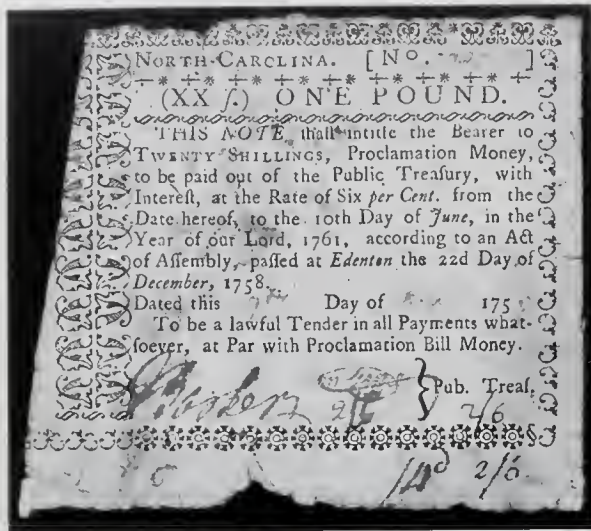 NORTH-CAROLINA. [ No. ]
(XX ſ.) ONE POUND.
THIS NOTE ſhall intitle the Bearer to
TWENTY SHILLINGS, Proclamation Money,
to be paid out of the Public Treaſury, with
Intereſt, at the Rate of Six per Cent. from the
Date hereof, to the 10th Day of June, in the
Year of our Lord, 1761, according to an Act
of Aſſembly, paſſed at Edenton the 22d Day of
December, 1758.
Dated this Day of 175
To be a lawful Tender in all Payments what-
ſoever, at Par with Proclamation Bill Money.
Pub. Treaſ.
2/6
2/6